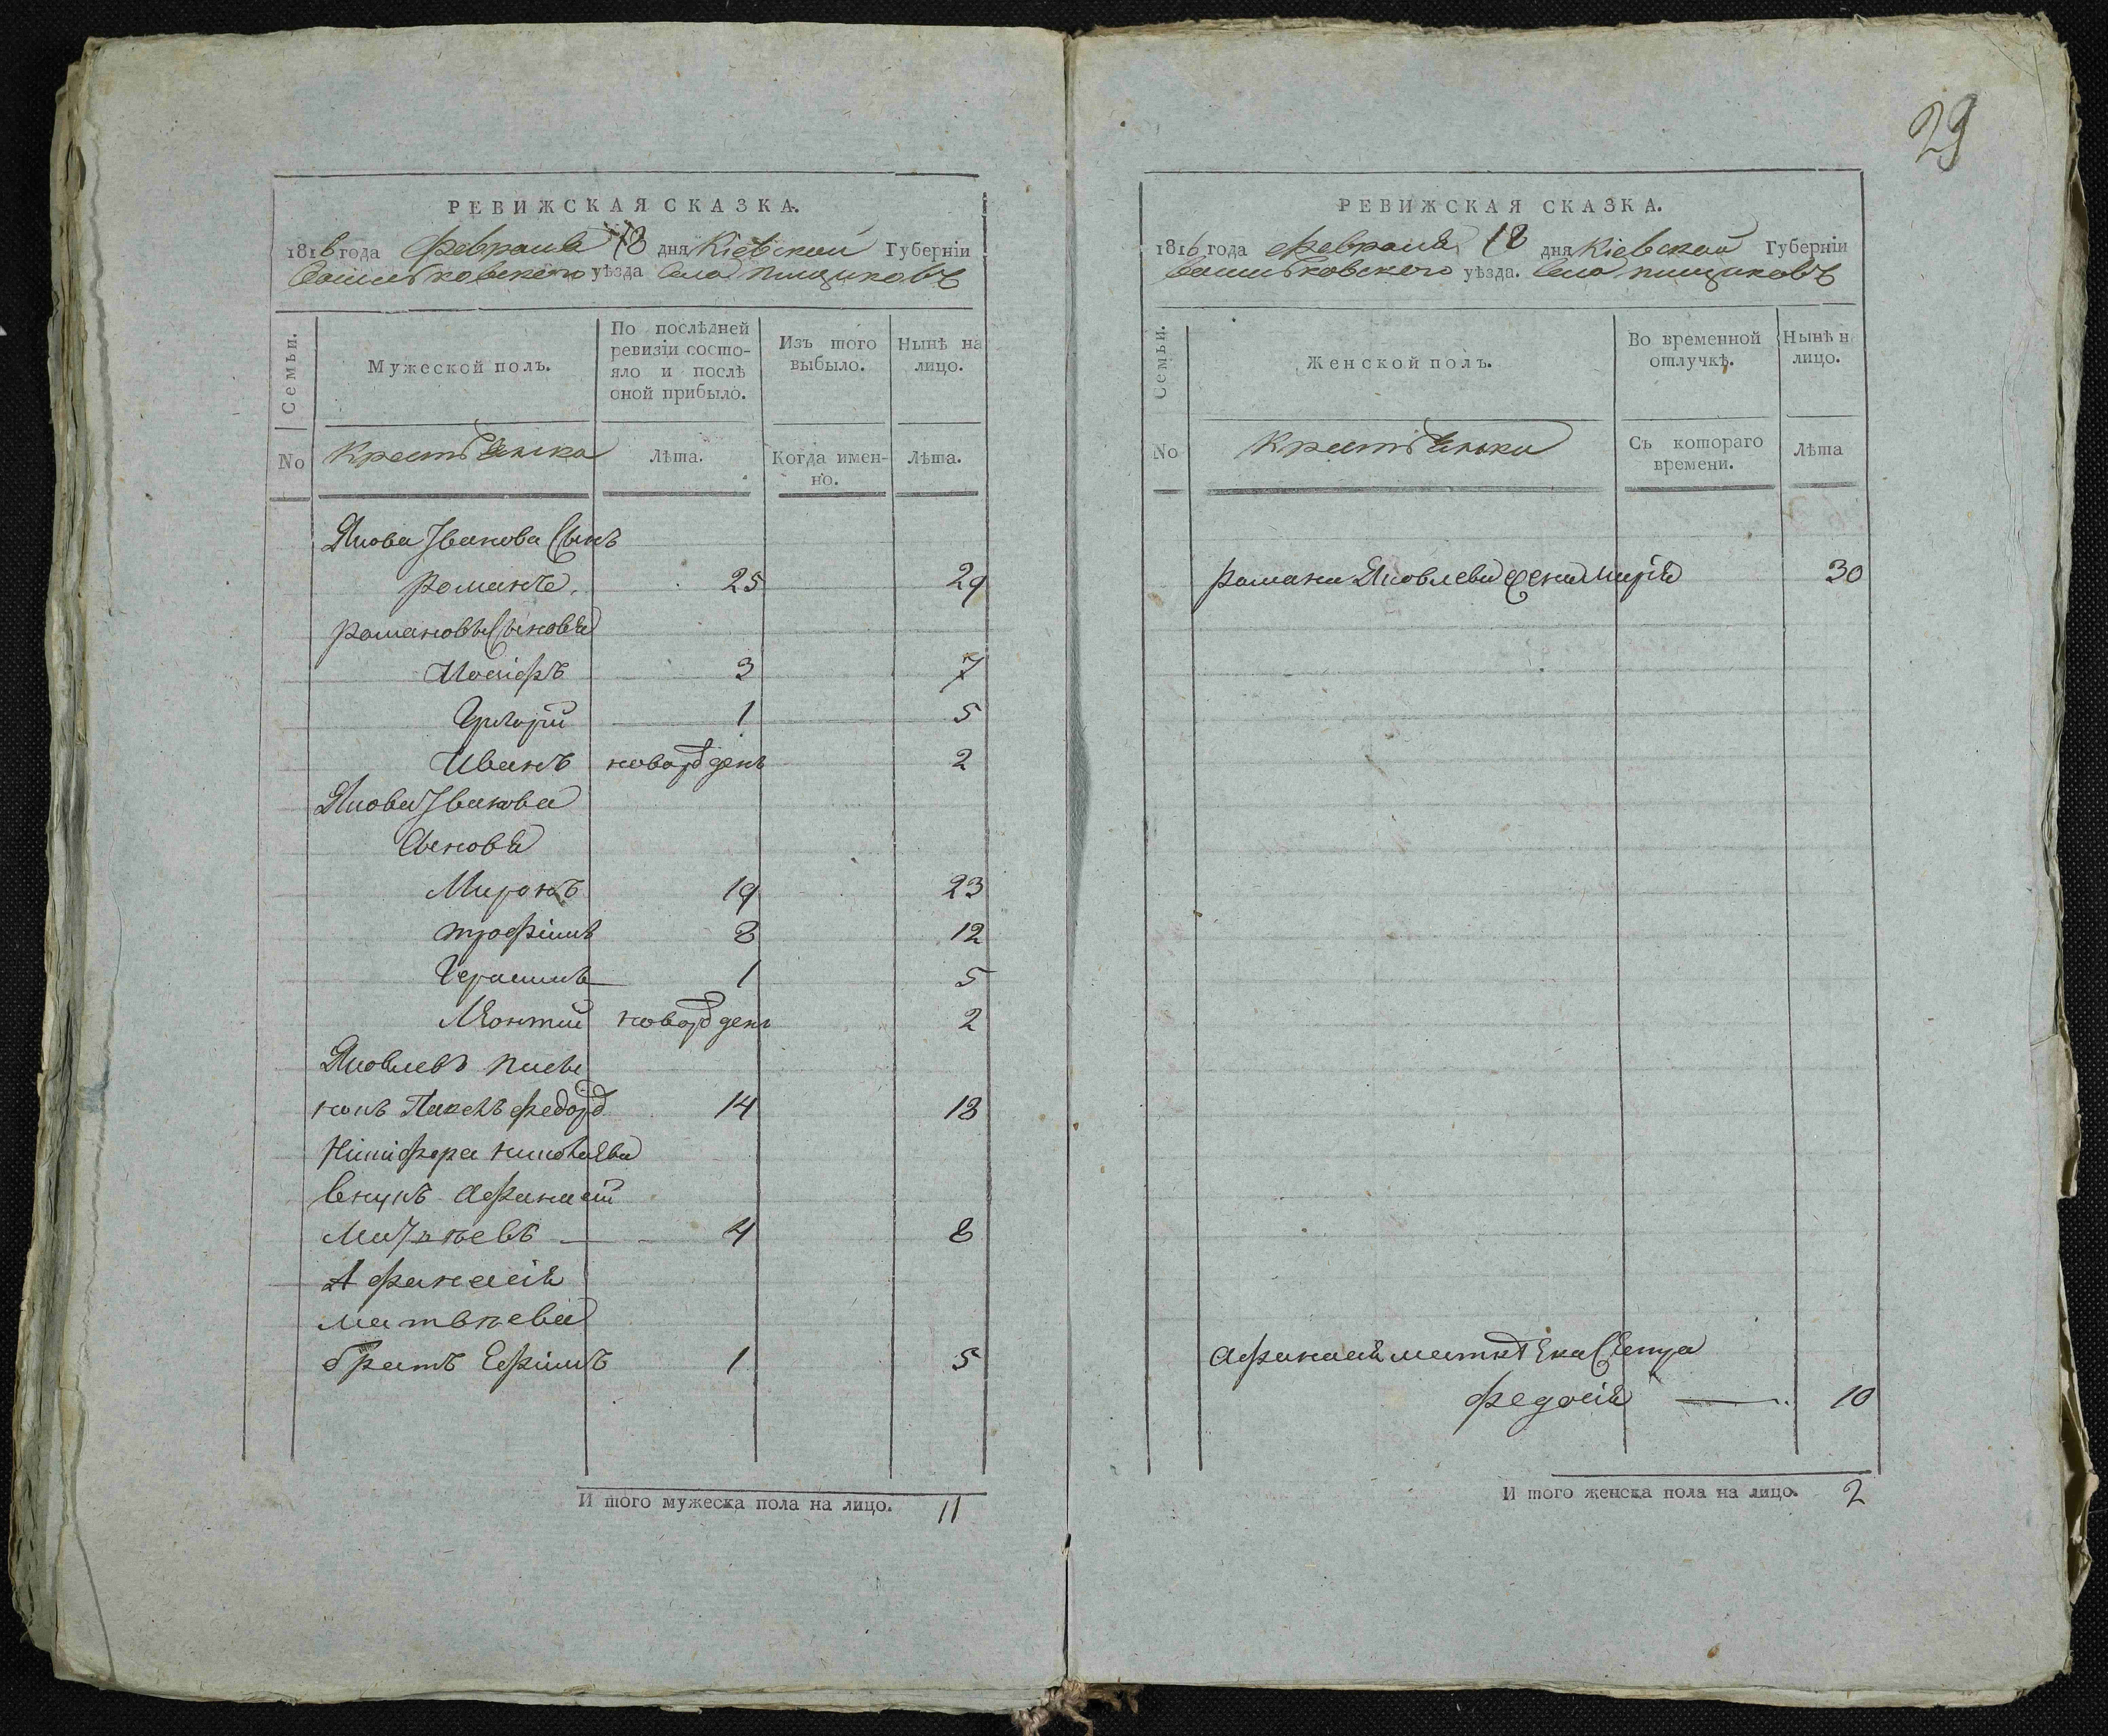 29
РЕВИЖСКАЯ СКАЗКА.
1816 года февраля 18 дня Кіевской Губерніи
Васильковского уѣзда Села пищиковъ
Семьи.
Мужеской полъ.
По послѣдней ревизіи состояло и послѣ оной прибыло.
Изъ того выбыло.
Нынѣ на лицо.
No
Крестьянъ
Лѣта.
Когда именно.
Лѣта.
Якова Iванова Сынъ
романъ. 25 29
романовы Сыновя
Иосифъ 3 7
Григорій 1 5
Иванъ новорожденъ 2
Якова Iванова
Сыновя
Миронъ 19 23
трофимъ 8 12
Герасимъ 1 5
Леонтий новорожденъ 2
Яковлевъ пасы
нокъ Павелъ федоров 14 18
Никифора
внукъ Афанасій
Матвѣевъ 4 8
Афанасія
матвѣева
братъ Ефимъ 1 5
И того мужеска пола на лицо. 11
РЕВИЖСКАЯ СКАЗКА.
1816 года февраля 18 дня Кіевской Губерніи
Васильковского уѣзда. Села пищиковъ
Семьи.
Женской полъ.
Во временной отлучкѣ.
Нынѣ н лицо.
No
Крестьянки
Съ котораго времени.
Лѣта
романа Яковлева жена Марія 30
Афанасія матвѣева Сестра
федосія 10
И того женска пола на лицо. 2